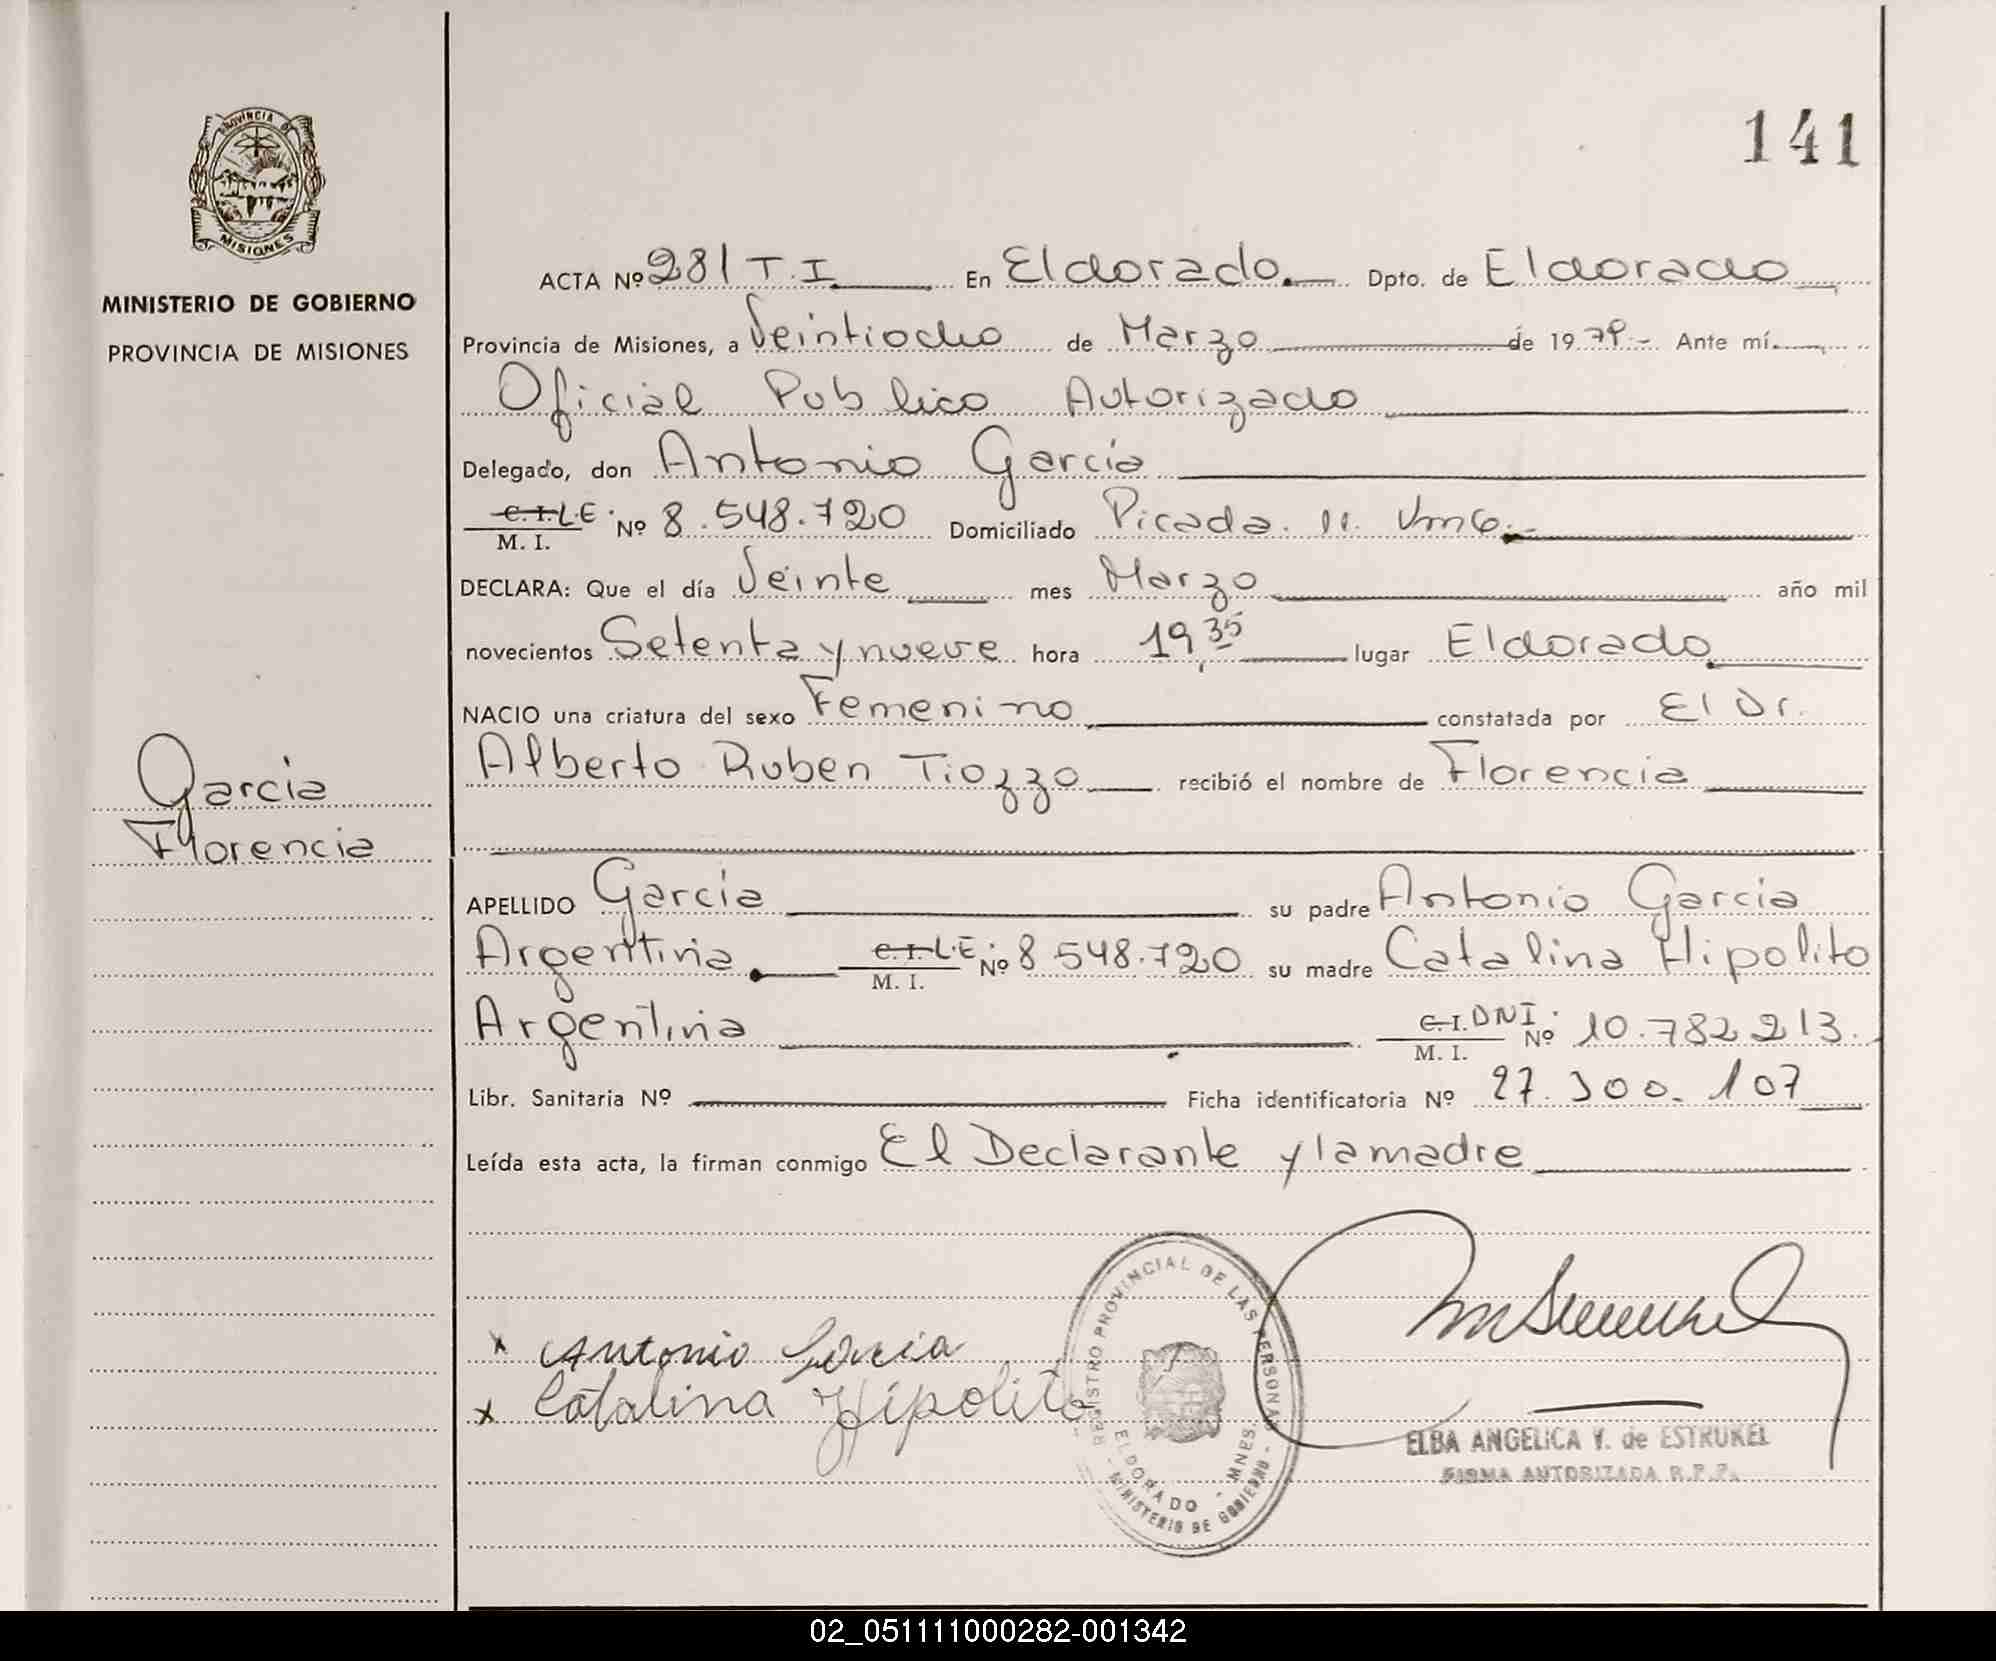 PROVINCIA DE
MISIONES
MINISTERIO DE GOBIERNO
PROVINCIA DE MISIONES
141
ACTA Nº 281 T.I. En Eldorado. Dpto. de Eldorado
Provincia de Misiones, a Veintiocho de Marzo de 1979.- Ante mí.
Oficial Publico Autorizado
Delegado, don Antonio García
C.I. L.E. Nº 8.548.720 Domiciliado Picada 11.
M. I.
DECLARA: Que el día Veinte mes Marzo año mil
novecientos Setenta y nueve hora 19,35 lugar Eldorado
NACIO una criatura del sexo Femenino constatada por El Dr.
Alberto Ruben Tiozzo recibió el nombre de Florencia
García
Florencia
APELLIDO García su padre Antonio Garcia
Argentina. C.I. L.E. Nº 8.548.720 su madre Catalina Hipolito
M. I.
Argentina C.I. DNI. Nº 10.782213.
M. I.
Libr. Sanitaria Nº Ficha identificatoria Nº 27.300.107
Leída esta acta, la firman conmigo El Declarante y la madre
x Antonio Garcia
x Catalina Hipolito
REGISTRO PROVINCIAL DE LAS PERSONAS
ELDORADO - MNES.
- MINISTERIO DE GOBIERNO -
ELBA ANGELICA Y. de ESTRUKEL
FIRMA AUTORIZADA R.P.P.
02_051111000282-001342